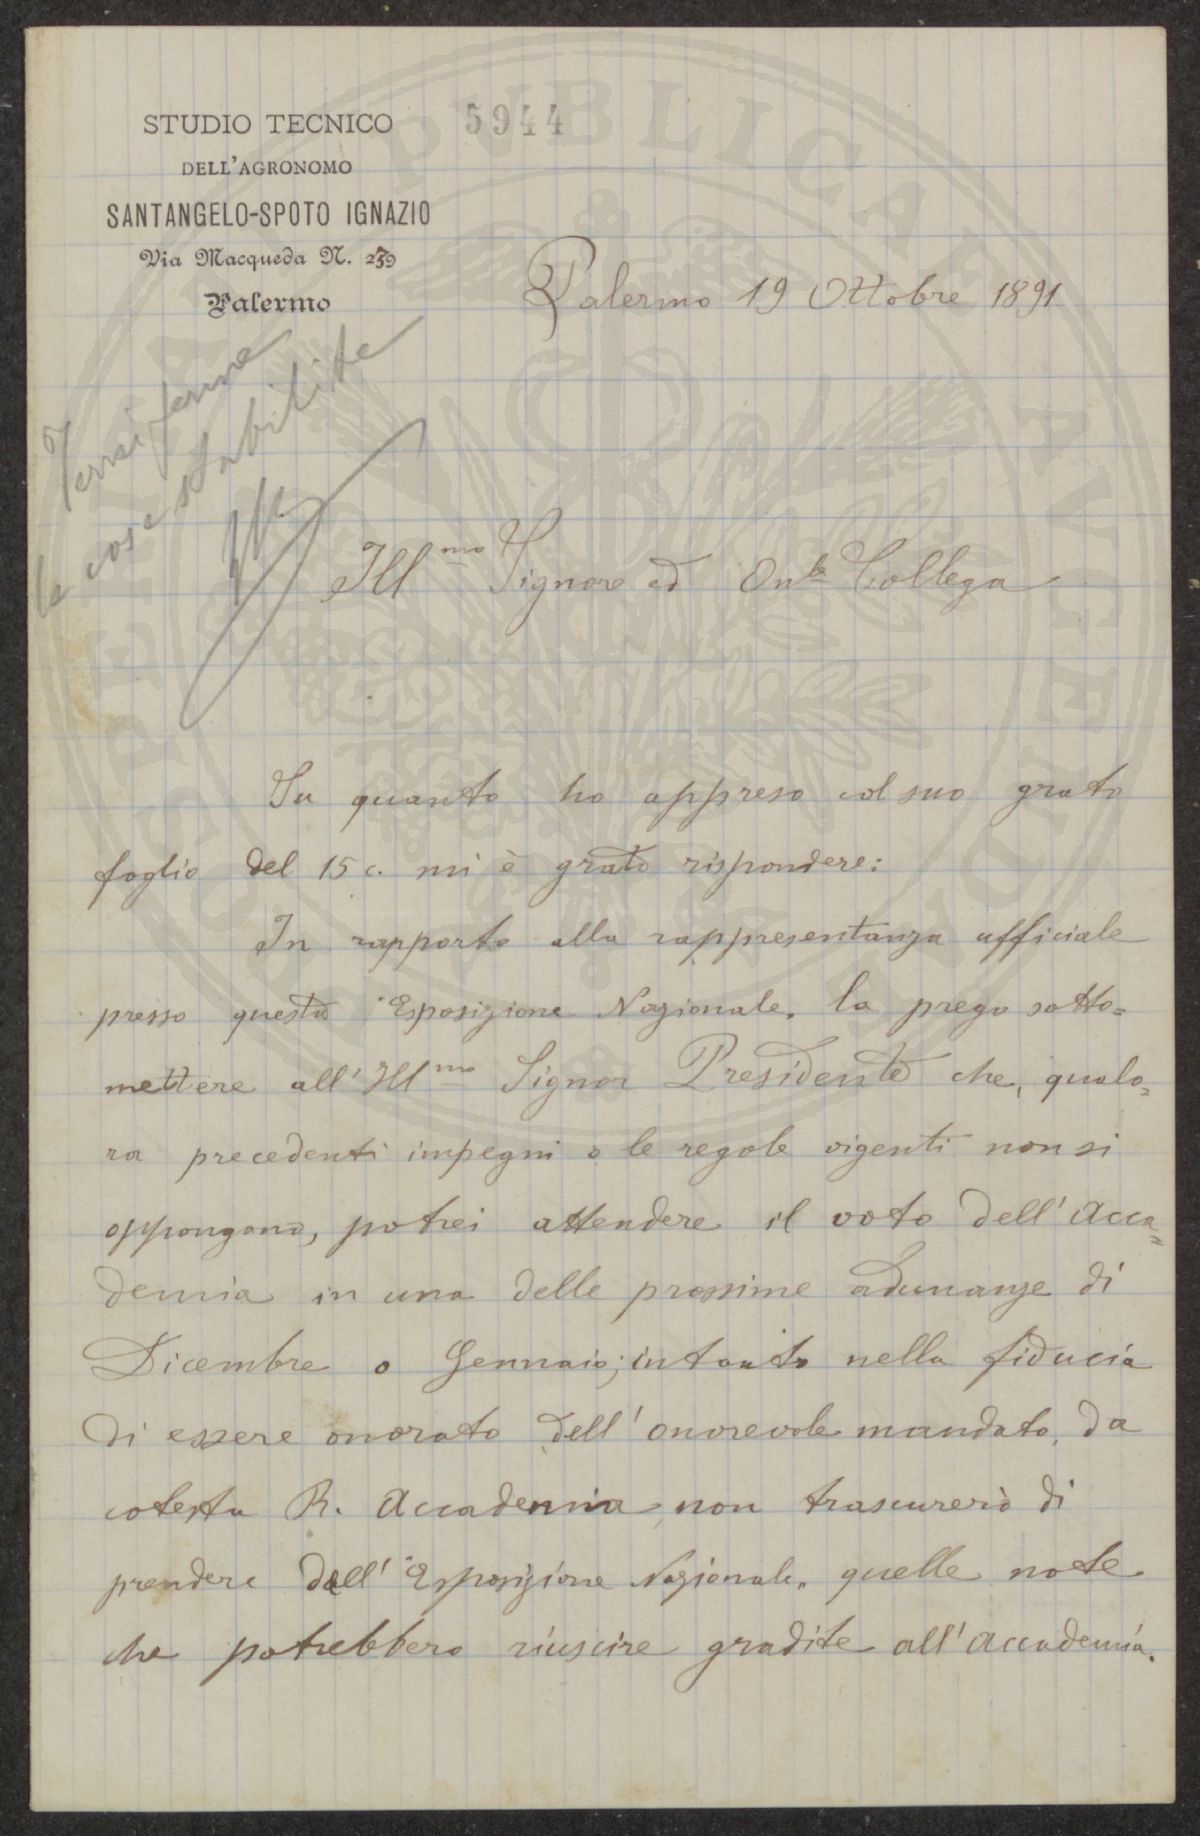 STUDIO TECNICO
DELL'AGRONOMO
SANTANGELO-SPOTO IGNAZIO
Via Macqueda N. 239
Palermo
5944
Palermo 19 Ottobre 1891
ferme
le cose stabilite
Ill.mo Signore ed On.le Collega
Su quanto ho appreso col suo grato
foglio del 15 c. mi è grato rispondere:
In rapporto alla rappresentanza ufficiale
presso questa "Esposizione Nazionale" la prego sotto=
mettere all'Ill.mo Signor Presidente che, qualo=
ra precedenti impegni o le regole vigenti non si
oppongano, potrei attendere il voto dell'Acca=
demia in una delle prossime adunanze di
Dicembre o Gennaio; intanto nella fiducia
di essere onorato dell'onorevole mandato, da
cotesta R. Accademia, non trascurerò di
prendere dall'"Esposizione Nazionale" quelle note
che potrebbero riuscire gradite all'Accademia.